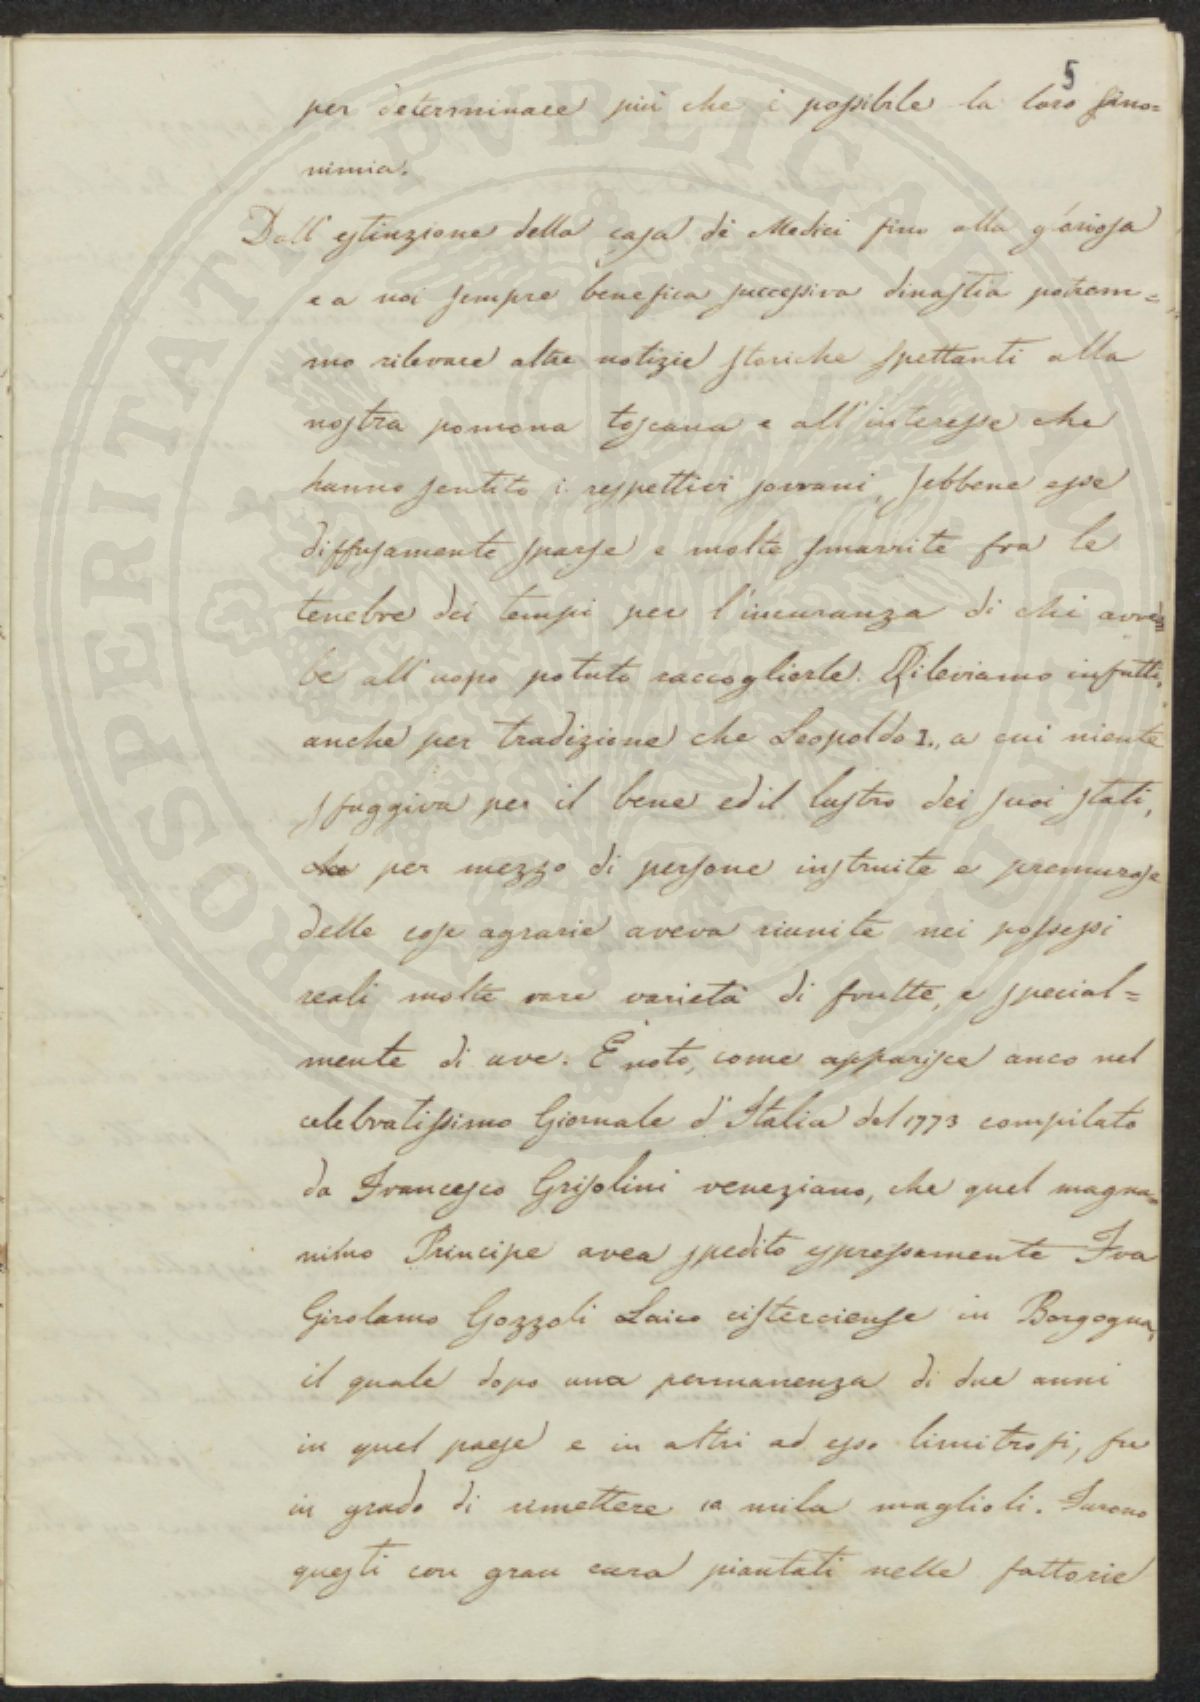 5
per determinare più che è possibile la loro sino=
nimia.
Dall'estinzione della casa de Medici fino alla gloriosa
e a noi sempre benefica successiva dinastia potrem=
mo rilevare altre notizie storiche spettanti alla
nostra pomona toscana e all'interesse che
hanno sentito i respettivi sovrani, sebbene esse
diffusamente sparse e molte smarrite fra le
tenebre dei tempi per l'incuranza di chi avreb
be all'uopo potuto raccoglierle. Rileviamo infatti,
anche per tradizione che Leopoldo I., a cui niente
sfuggiva per il bene ed il lustro dei suoi stati,
per mezzo di persone instruite e premurose
delle cose agrarie aveva riunite nei possessi
reali molte rare varietà di frutte, e special=
mente di uve. È noto, come apparisce anco nel
celebratissimo Giornale d'Italia del 1773 compilato
da Francesco Griselini veneziano, che quel magna=
nimo Principe avea spedito espressamente Fra
Girolamo Gozzoli Laico cisterciense in Borgogna,
il quale dopo una permanenza di due anni
in quel paese e in altri ad esso limitrofi, fu
in grado di rimettere mila maglioli. Furono
questi con gran cura piantati nelle fattorie
PROSPERITATI PVBLICAE AVGENDAE